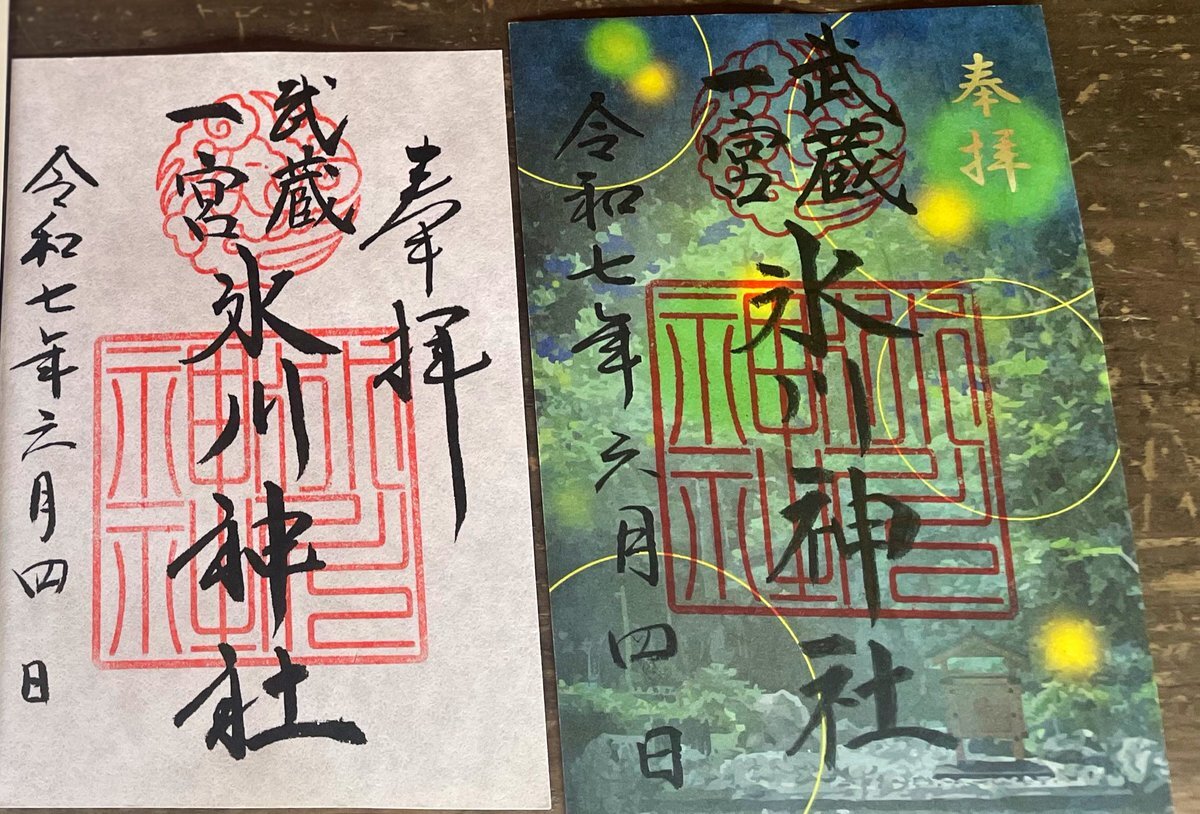 奉拝
武蔵
一宮
氷川神社
令和七年六月四日
氷川
神社
奉拝
武蔵
一宮
氷川神社
令和七年六月四日
氷川
神社